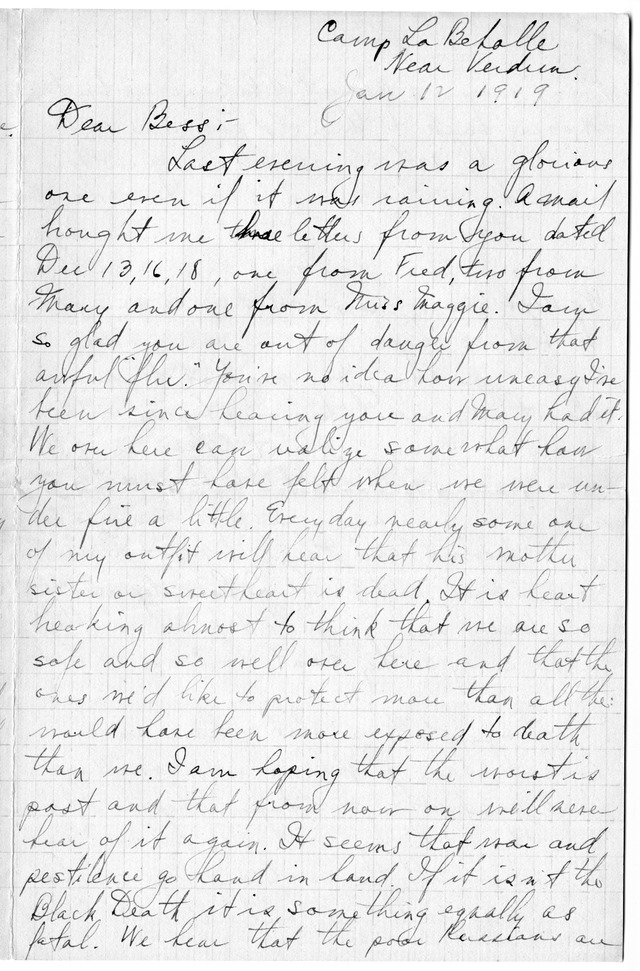 Camp La Beholle
Near Verdun.
Jan 12 1919
Dear Bess:-
Last evening was a glorious
one even if it was raining. A mail
brought me three letters from you dated
Dec 13, 16, 18, one from Fred, two from
Mary and one from Miss Maggie. I am
so glad you are out of danger from that
awful "flu." You've no idea how uneasy I've
been since hearing you and Mary had it.
We over here can realize somewhat how
you must have felt when we were un-
der fire a little. Everyday nearly some one
of my outfit will hear that his mother
sister or sweetheart is dead. It is heart
breaking almost to think that we are so
safe and so well over here and that the
ones we'd like to protect more than all the
world have been more exposed to death
than we. I am hoping that the worst is
past and that from now on we'll never
hear of it again. It seems that war and
pestilence go hand in hand. If it isn't the
Black Death it is something equally as
fatal. We hear that the poor Russians are